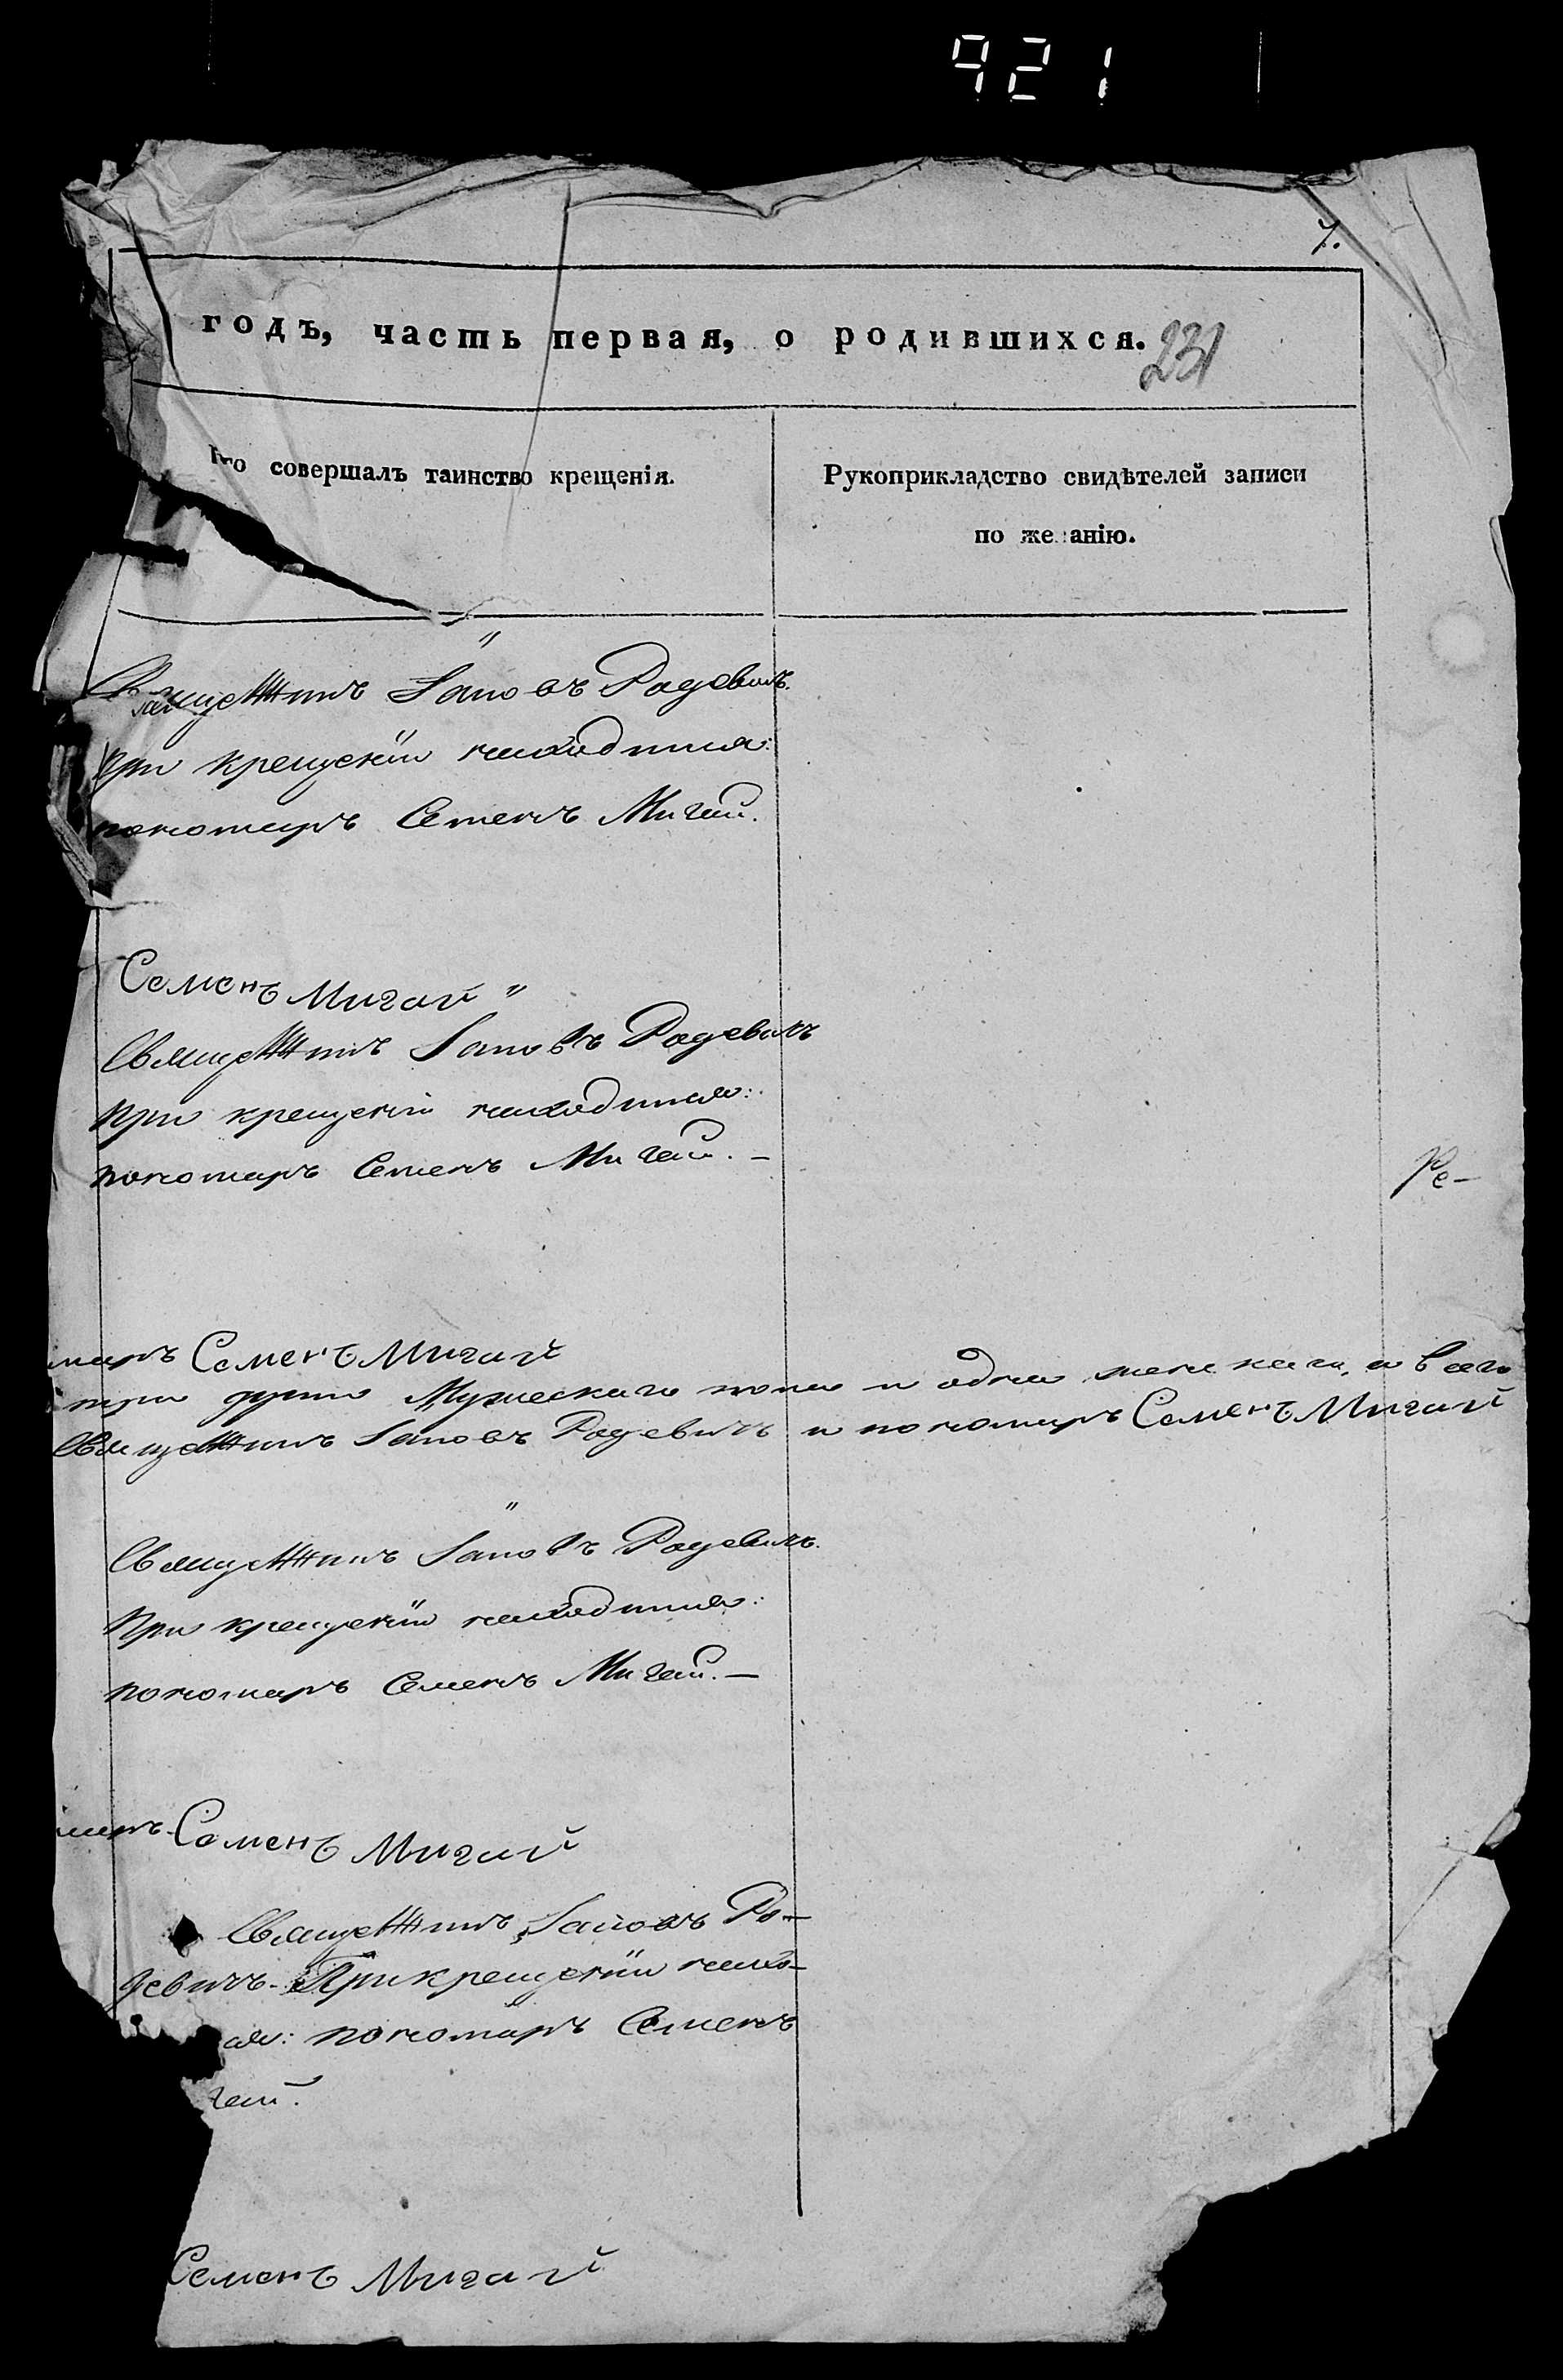 921
7.
годъ, часть первая, о родившихся. 231
Кто совершалъ таинство крещенія.
Рукоприкладство свидѣтелей записи
по желанію.
Священникъ Іаковъ Радевичъ.
При крещеніи находился:
пономарь Семенъ Мигай.
Семенъ Мигай
Священникъ Іаковъ Радевичъ
При крещеніи находился:
пономарь Семенъ Мигай. —
Ре-
марь Семенъ Мигай
три души Мужескаго пола и одна женскаго, а всего
Священникъ Іаковъ Радевичъ и пономарь Семенъ Мигай
Священникъ Іаковъ Радевичъ.
При крещеніи находился:
пономарь Семенъ Мигай. —
марь Семенъ Мигай
Священникъ Іаковъ Ра-
девичъ. При крещеніи нахо-
ся: пономарь Семенъ
гай.
Семенъ Мигай